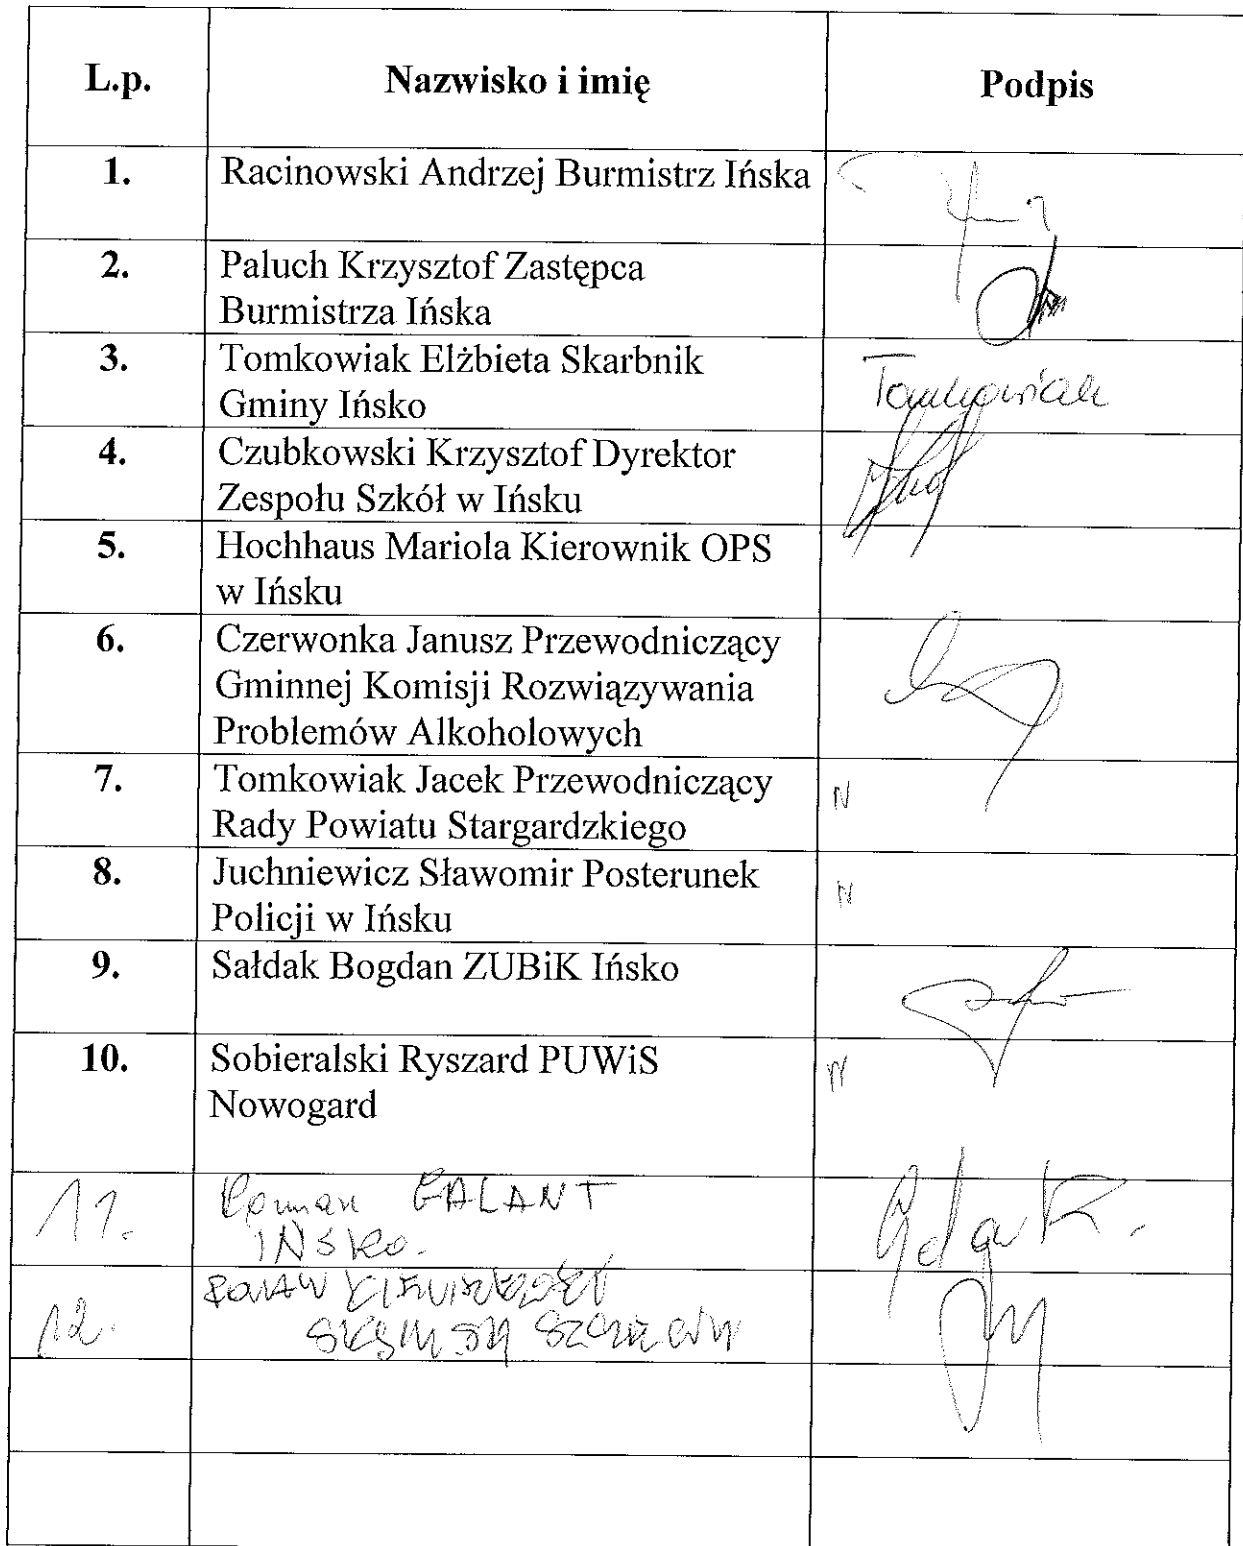 L.p. Nazwisko i imię Podpis
1. Racinowski Andrzej Burmistrz Ińska
2. Paluch Krzysztof Zastępca
Burmistrza Ińska
3. Tomkowiak Elżbieta Skarbnik
Gminy Ińsko
Tomkowiak
4. Czubkowski Krzysztof Dyrektor
Zespołu Szkół w Ińsku
5. Hochhaus Mariola Kierownik OPS
w Ińsku
6. Czerwonka Janusz Przewodniczący
Gminnej Komisji Rozwiązywania
Problemów Alkoholowych
7. Tomkowiak Jacek Przewodniczący
Rady Powiatu Stargardzkiego
N
8. Juchniewicz Sławomir Posterunek
Policji w Ińsku
N
9. Sałdak Bogdan ZUBiK Ińsko
10. Sobieralski Ryszard PUWiS
Nowogard
N
11. Roman GALANT
IŃSKO.
12.